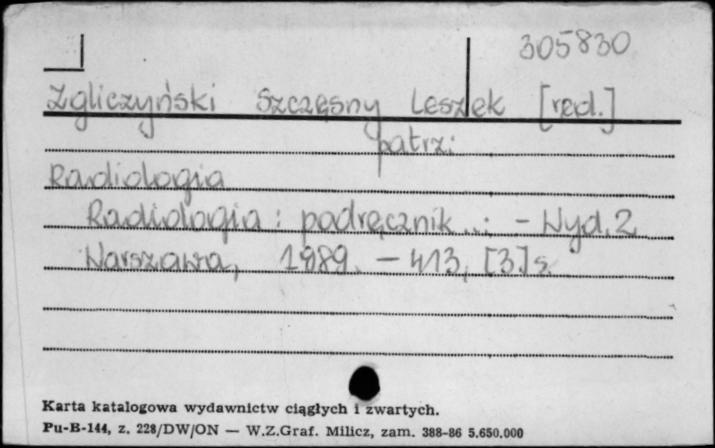 305830
Zgliczyński Szczęsny Leszek [red.]
patrz:
Radiologia
Radiologia : podręcznik...: - Wyd. 2
Warszawa, 1989. - 413, [3] s.
Karta katalogowa wydawnictw ciągłych i zwartych.
Pu-B-144, z. 228/DW/ON — W.Z.Graf. Milicz, zam. 388-86 5.650.000